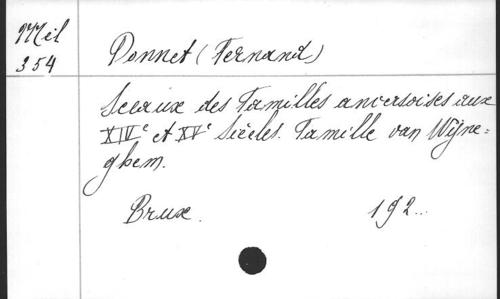 Mil
354
Donnet (Fernand)
Sceaux des Familles anversoises aux
XIVe et XVe Siècles. Famille van Wijne-
ghem.
Brux.
192..